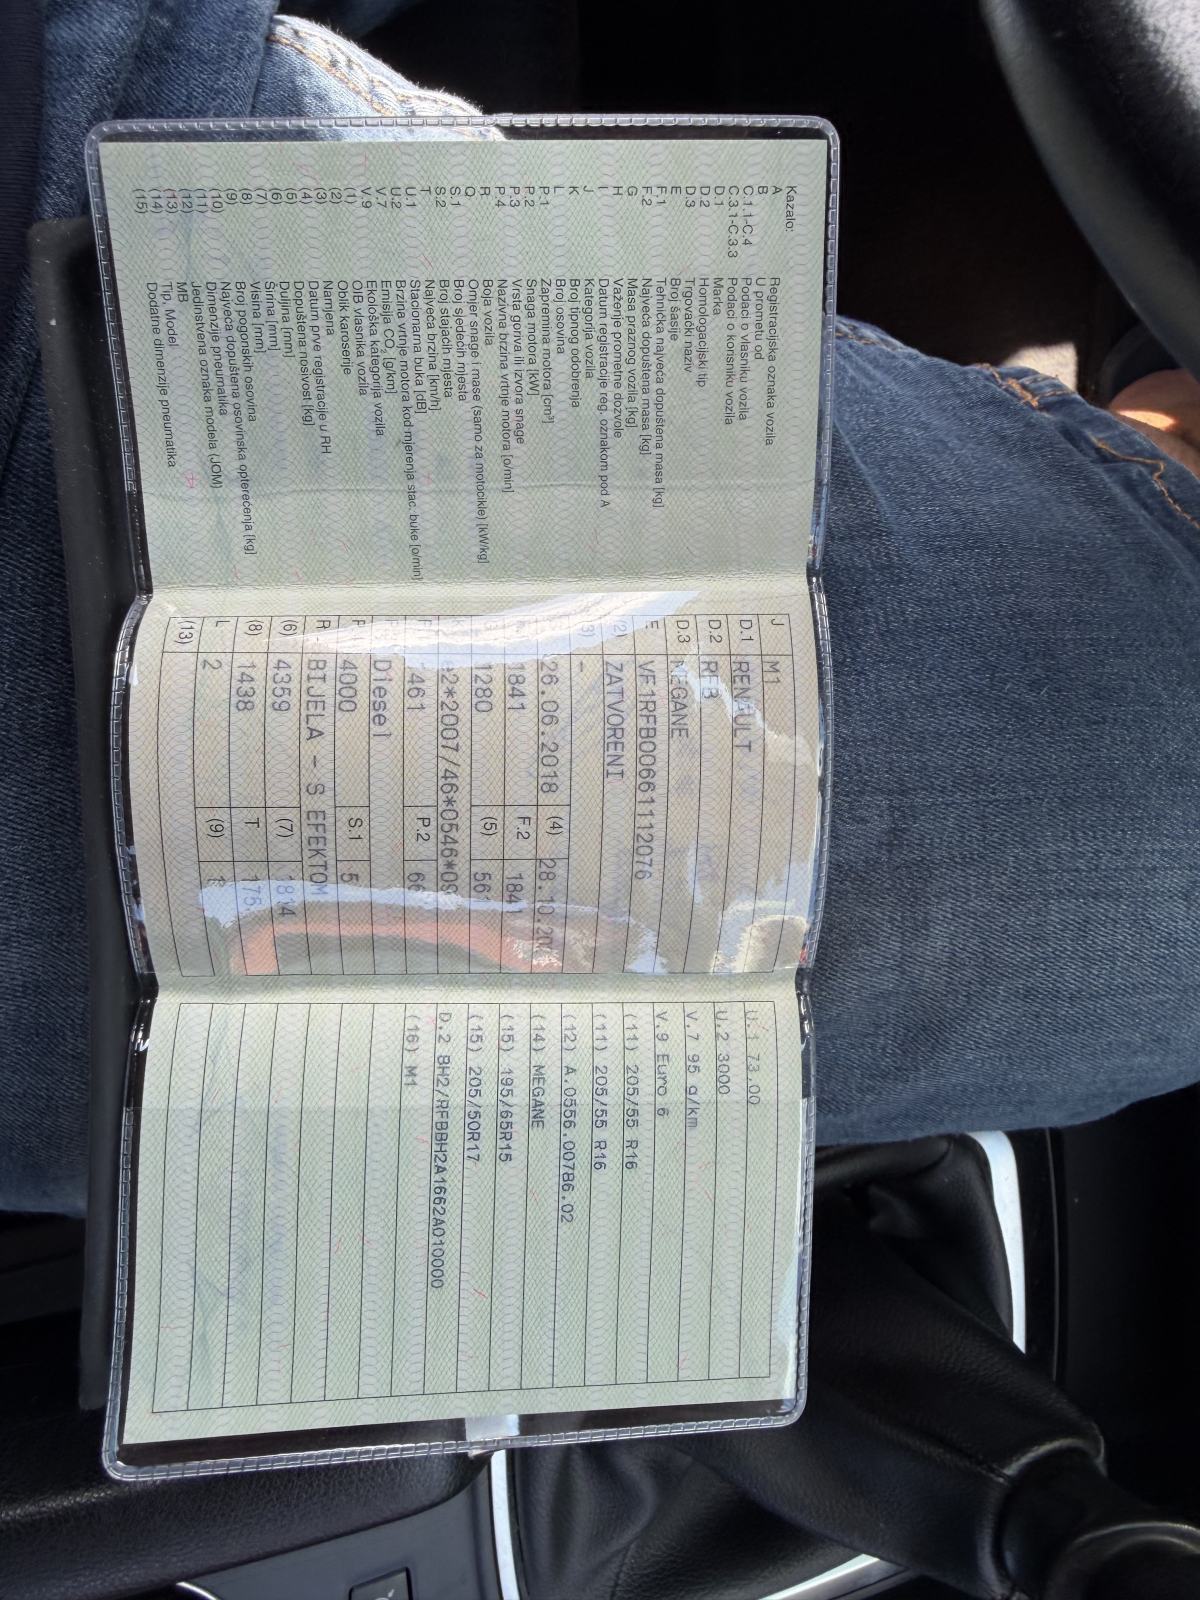 Kazalo:
A Registracijska oznaka vozila
B U prometu od
C.1.1-C.4 Podaci o vlasniku vozila
C.3.1-C.3.3 Podaci o korisniku vozila
D.1 Marka
D.2 Homologacijski tip
D.3 Trgovački naziv
E Broj šasije
F.1 Tehnička najveća dopuštena masa [kg]
F.2 Najveća dopuštena masa [kg]
G Masa praznog vozila [kg]
H Važenje prometne dozvole
I Datum registracije reg. oznakom pod A
J Kategorija vozila
K Broj tipnog odobrenja
L Broj osovina
P.1 Zapremina motora [cm³]
P.2 Snaga motora [kW]
P.3 Vrsta goriva ili izvora snage
P.4 Nazivna brzina vrtnje motora [o/min]
R Boja vozila
Q Omjer snage i mase (samo za motocikle) [kW/kg]
S.1 Broj sjedećih mjesta
S.2 Broj stajaćih mjesta
T Najveća brzina [km/h]
U.1 Stacionarna buka [dB]
U.2 Brzina vrtnje motora kod mjerenja stac. buke [o/min]
V.7 Emisija CO₂ [g/km]
V.9 Ekološka kategorija vozila
(1) OIB vlasnika vozila
(2) Oblik karoserije
(3) Namjena
(4) Datum prve registracije u RH
(5) Dopuštena nosivost [kg]
(6) Duljina [mm]
(7) Širina [mm]
(8) Visina [mm]
(9) Broj pogonskih osovina
(10) Najveća dopuštena osovinska opterećenja [kg]
(11) Dimenzije pneumatika
(12) Jedinstvena oznaka modela (JOM)
(13) MB
(14) Tip, Model
(15) Dodatne dimenzije pneumatika
J M1
D.1 RENAULT
D.2 RFB
D.3 MEGANE
E VF1RFB00661112076
(2) ZATVORENI
(3) -
26.06.2018 (4) 28.10.
1841 F.2 1841
1280 (5) 561
e2*2007/46*0546*
461 P.2 66
Diesel
4000 S.1 5
R BIJELA - S EFEKTOM
(6) 4359 (7) 1814
(8) 1438 T 175
L 2 (9)
(13)
U.1 73.00
U.2 3000
V.7 95 g/km
V.9 Euro 6
(11) 205/55 R16
(11) 205/55 R16
(12) A.0556.00786.02
(14) MEGANE
(15) 195/65R15
(15) 205/50R17
D.2 BH2/RFBBH2A1662A010000
(16) M1